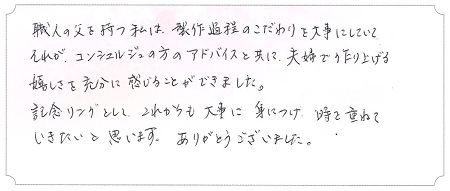 職人の父を持つ私は、製作過程のこだわりを大事にしていて
それが、コンシェルジュの方のアドバイスと共に、夫婦で作り上げる
嬉しさを充分に感じることができました。
記念リングとして、これからも大事に身につけ、時を重ねて
いきたいと思います。ありがとうございました。